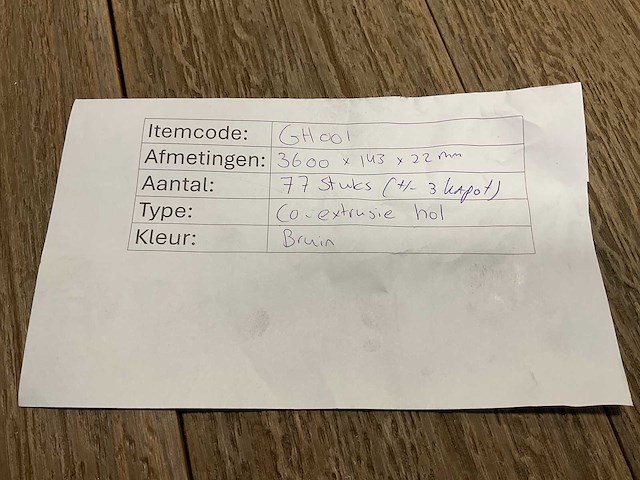 Itemcode: GH001
Afmetingen: 3600 x 143 x 22 mm
Aantal: 77 Stuks (+/- 3 kapot)
Type: Co-extrusie hol
Kleur: Bruin